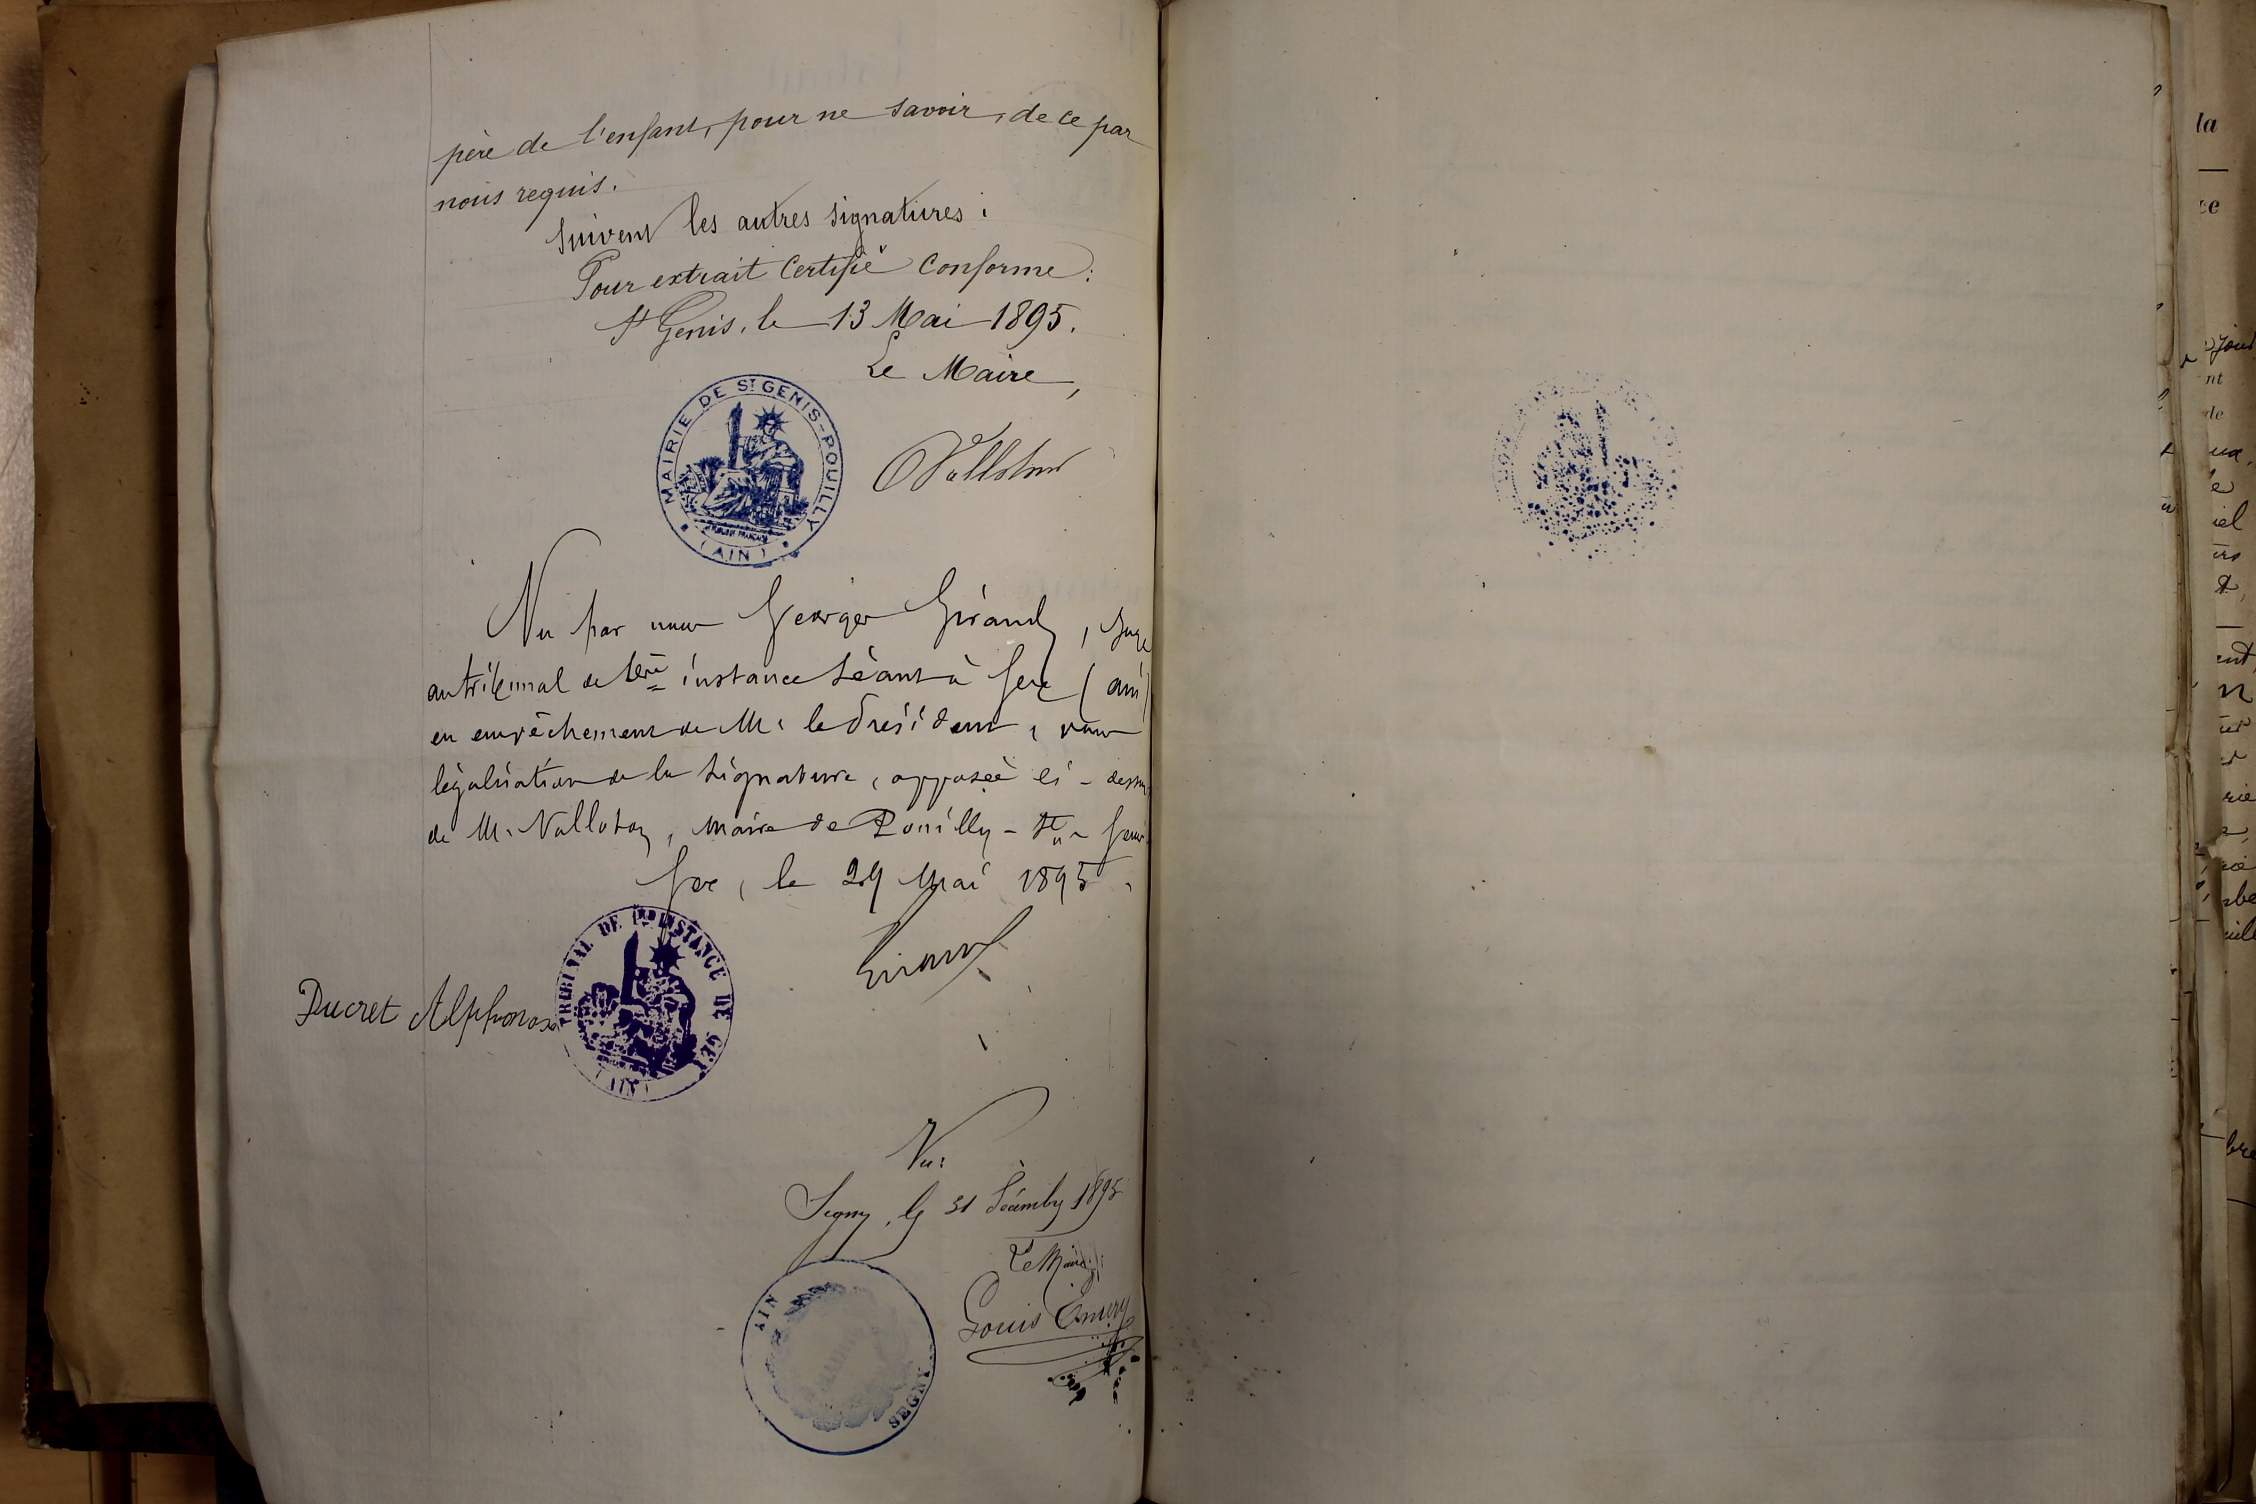 père de l'enfant, pour ne savoir, de ce par
nous requis.
Suivent les autres signatures.
Pour extrait certifié conforme :
St Genis, le 13 Mai 1895.
Le Maire,
MAIRIE DE ST GENIS-POUILLY
RÉPUBLIQUE FRANÇAISE
(AIN)
Valloton
Vu par nous Georges Girand, Juge
au tribunal de 1ère instance séant à Gex (Ain)
en empêchement de M. le Président, pour
légalisation de la signature, apposée ci-dessus
de M. Valloton, maire de Pouilly-St-Genis
Gex, le 29 Mai 1895.
Girand
TRIBUNAL DE 1RE INSTANCE DE GEX
(AIN)
Ducret Alphonse
Vu:
Segny, le 31 Décembre 1895
Le Maire
Louis Emery
AIN
MAIRIE
SEGNY
la
ce
jour
nt
de
iel
rie